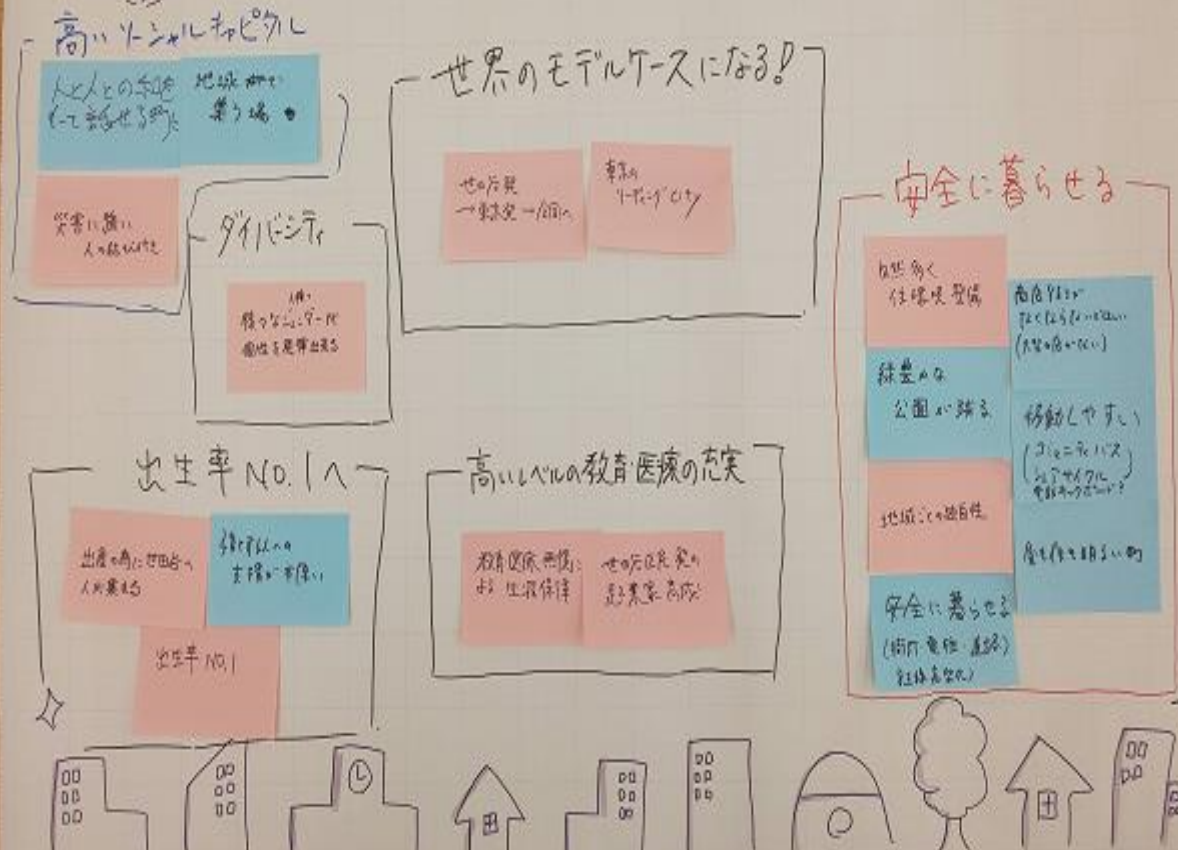 高いソーシャルキャピタル
人と人との
って話せる町に
地域
集う場
災害に強い
人の結びつき
ダイバーシティ
人権
様々なジェンダーや
個性を発揮出来る
世界のモデルケースになる!
世田谷発
→東京発→全国へ
東京の
リーディングCity
安全に暮らせる
自然多く
住環境整備
商店街が
なくならないでほしい
緑豊かな
公園が
移動しやすい
(コミュニティバス
シェアサイクル
電動キックボード?)
地域ごとの独自性
昼も夜も明るい町
安全に暮らせる
(街灯・電柱・道路)
出生率NO.1へ
出産の為に世田谷へ
人が集まる
子育て
支援が手厚い
出生率NO.1
高いレベルの教育・医療の充実
教育医療無償に
よる生涯保障
世田谷区民発の
起業家育成